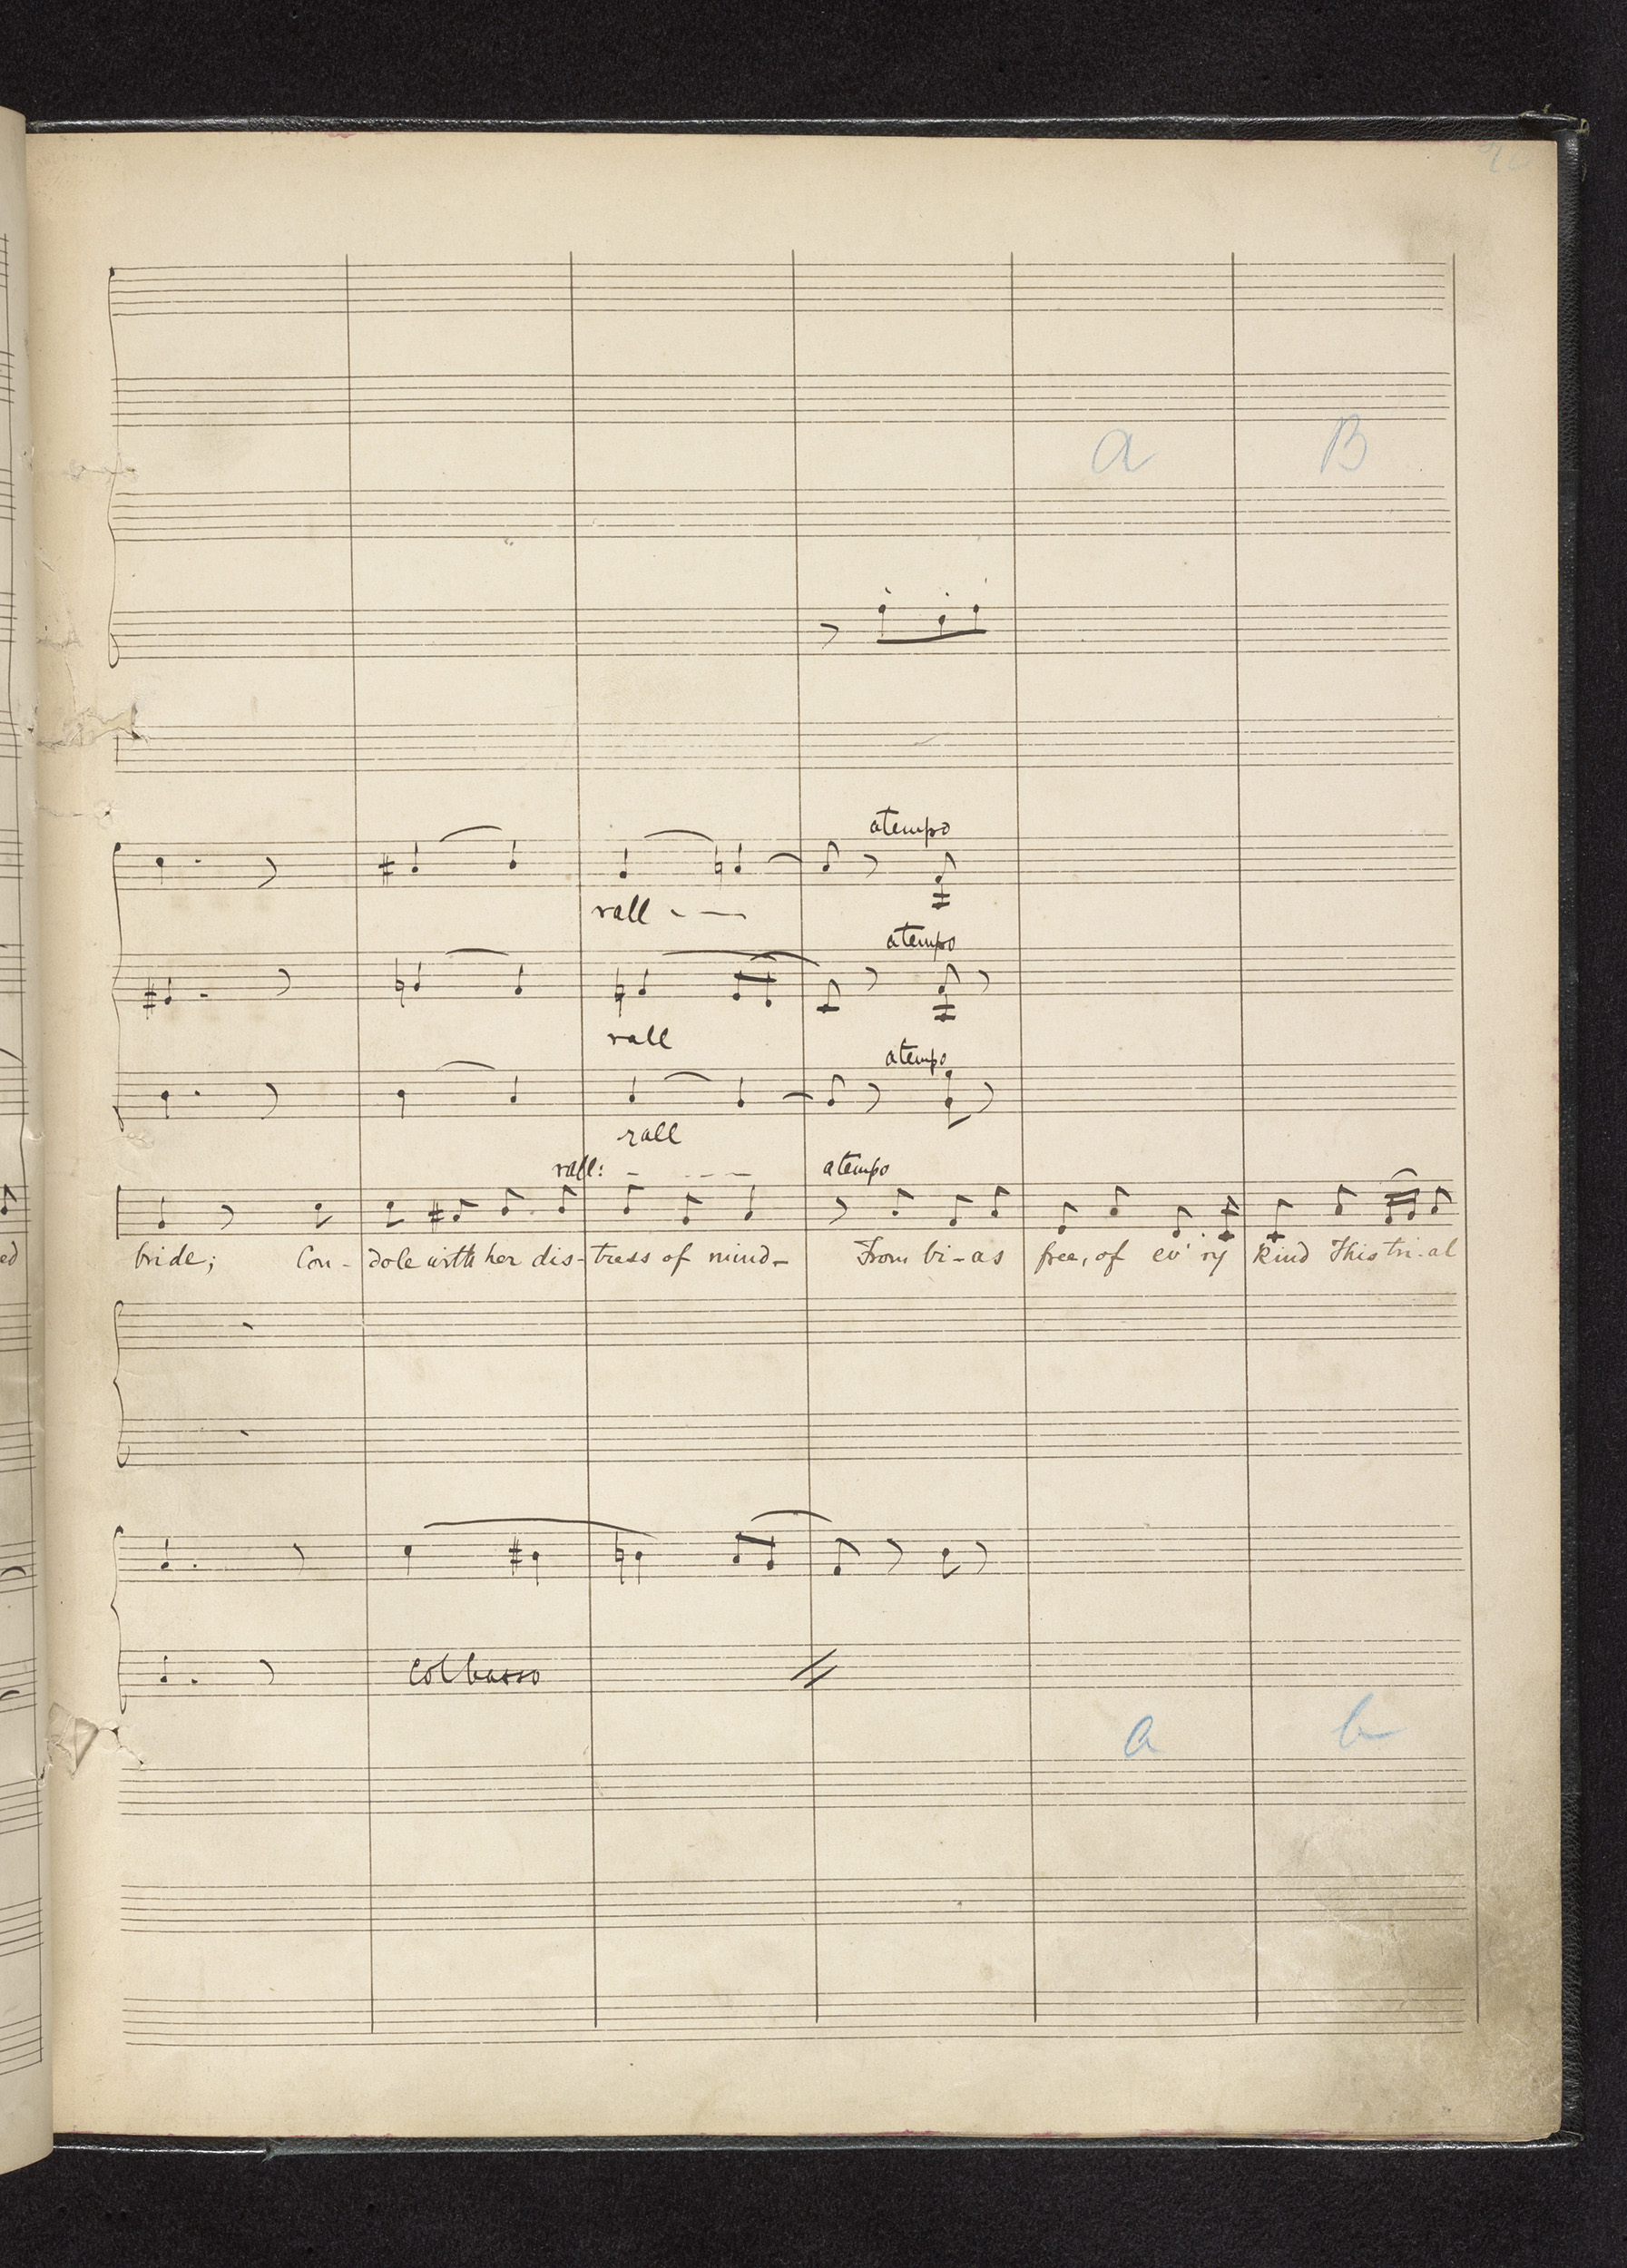 a B
atempo
rall - —
atempo
rall
atempo
rall
rall: - - - — atempo
bride; Con - dole with her dis - tress of mind - From bi - as free, of ev' ry kind This tri - al
Col basso
a b